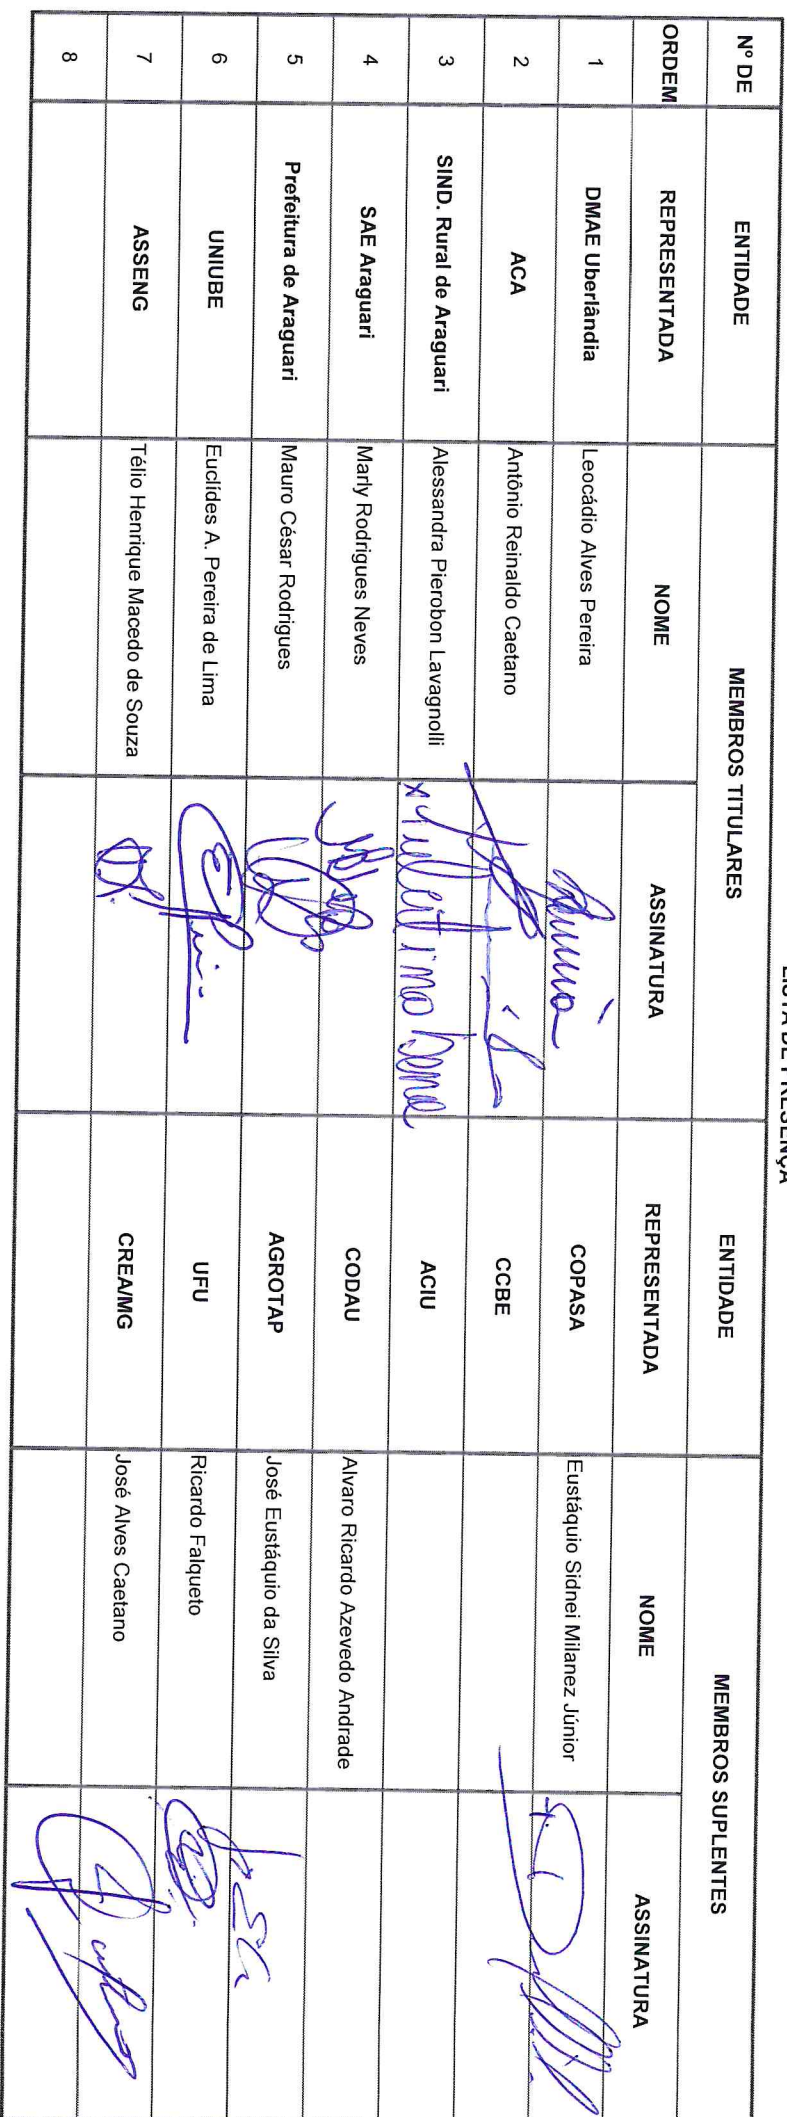 LISTA DE PRESENÇA
Nº DE ORDEM	ENTIDADE REPRESENTADA	MEMBROS TITULARES	ENTIDADE REPRESENTADA	MEMBROS SUPLENTES
NOME	ASSINATURA	NOME	ASSINATURA
1	DMAE Uberlândia	Leocádio Alves Pereira	COPASA	Eustáquio Sidnei Milanez Júnior
2	ACA	Antônio Reinaldo Caetano	CCBE
3	SIND. Rural de Araguari	Alessandra Pierobon Lavagnolli	ACIU
4	SAE Araguari	Marly Rodrigues Neves	CODAU	Alvaro Ricardo Azevedo Andrade
5	Prefeitura de Araguari	Mauro César Rodrigues	AGROTAP	José Eustáquio da Silva
6	UNIUBE	Euclídes A. Pereira de Lima	UFU	Ricardo Falqueto
7	ASSENG	Télio Henrique Macedo de Souza	CREA/MG	José Alves Caetano
8